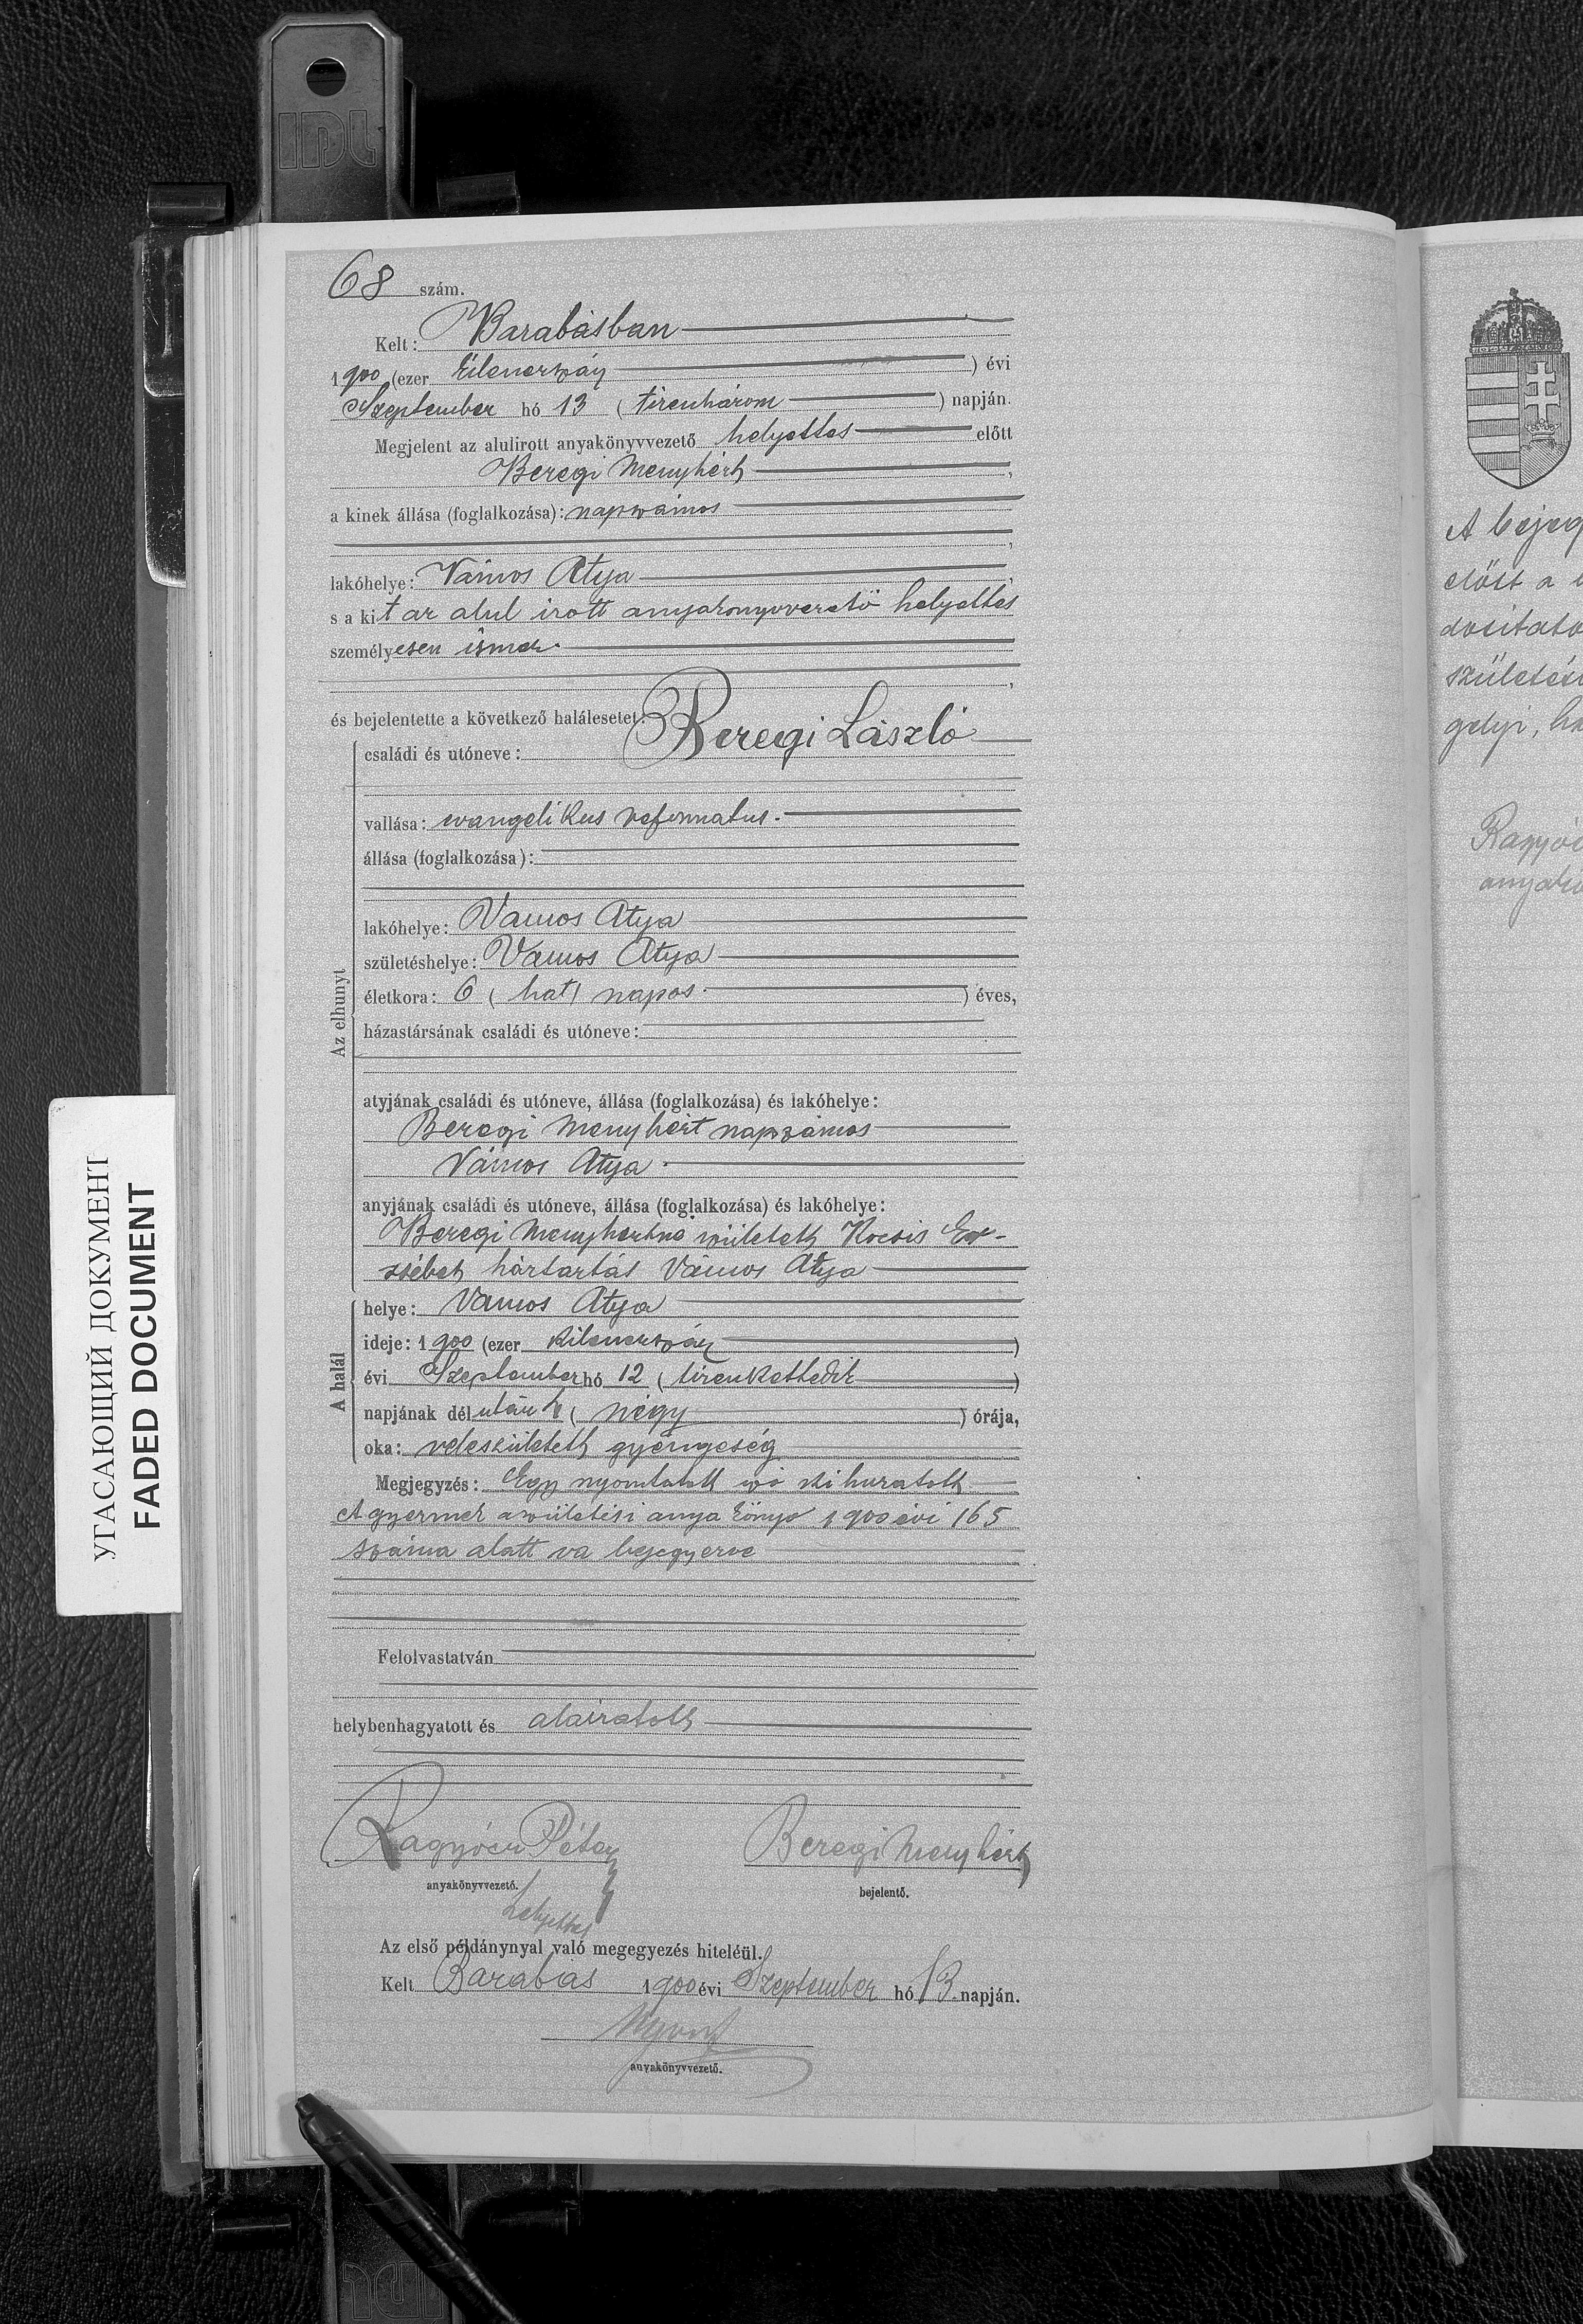 IDL
68 szám.
Kelt: Barabásban
1900 (ezer kilencszáz) évi
Szeptember hó 13 (tizenhárom) napján.
Megjelent az alulirott anyakönyvvezető helyettes előtt
Beregi Menyhért,
a kinek állása (foglalkozása): napszámos
lakóhelye: Vámos Atya,
s a kit az alul irott anyakönyvvezető helyettes
személyesen ismer.
és bejelentette a következő halálesetet:
Az elhunyt
családi és utóneve: Beregi László
vallása: evangélikus reformatus.
állása (foglalkozása):
lakóhelye: Vamos Atya
születéshelye: Vamos Atya
életkora: 6 (hat) napos. ) éves,
házastársának családi és utóneve:
atyjának családi és utóneve, állása (foglalkozása) és lakóhelye:
Beregi Menyhért napszámos
Vámos Atya.
anyjának családi és utóneve, állása (foglalkozása) és lakóhelye:
Beregi Menyhértné született Kocsis Er-
zsébet háztartás Vámos Atya
A halál
helye: Vamos Atya
ideje: 1900 (ezer kilencszáz)
évi Szeptember hó 12 (tizenkettedik)
napjának délután 4 (négy) órája,
oka: veleszületett gyengeség
Megjegyzés: Egy nyomtatott szó kihuzatott
A gyermek a születési anya könyv 1900 évi 165
száma alatt va bejegyezve
Felolvastatván
helybenhagyatott és aláiratott
Ragyóczi Péter Beregi Menyhért
anyakönyvvezető. bejelentő.
helyettes
Az első példánynyal való megegyezés hiteléül.
Kelt Barabas 1900 évi Szeptember hó 13. napján.
anyakönyvvezető.
УГАСАЮЩИЙ ДОКУМЕНТ
FADED DOCUMENT
A bejeg
előtt a
születési
IDL